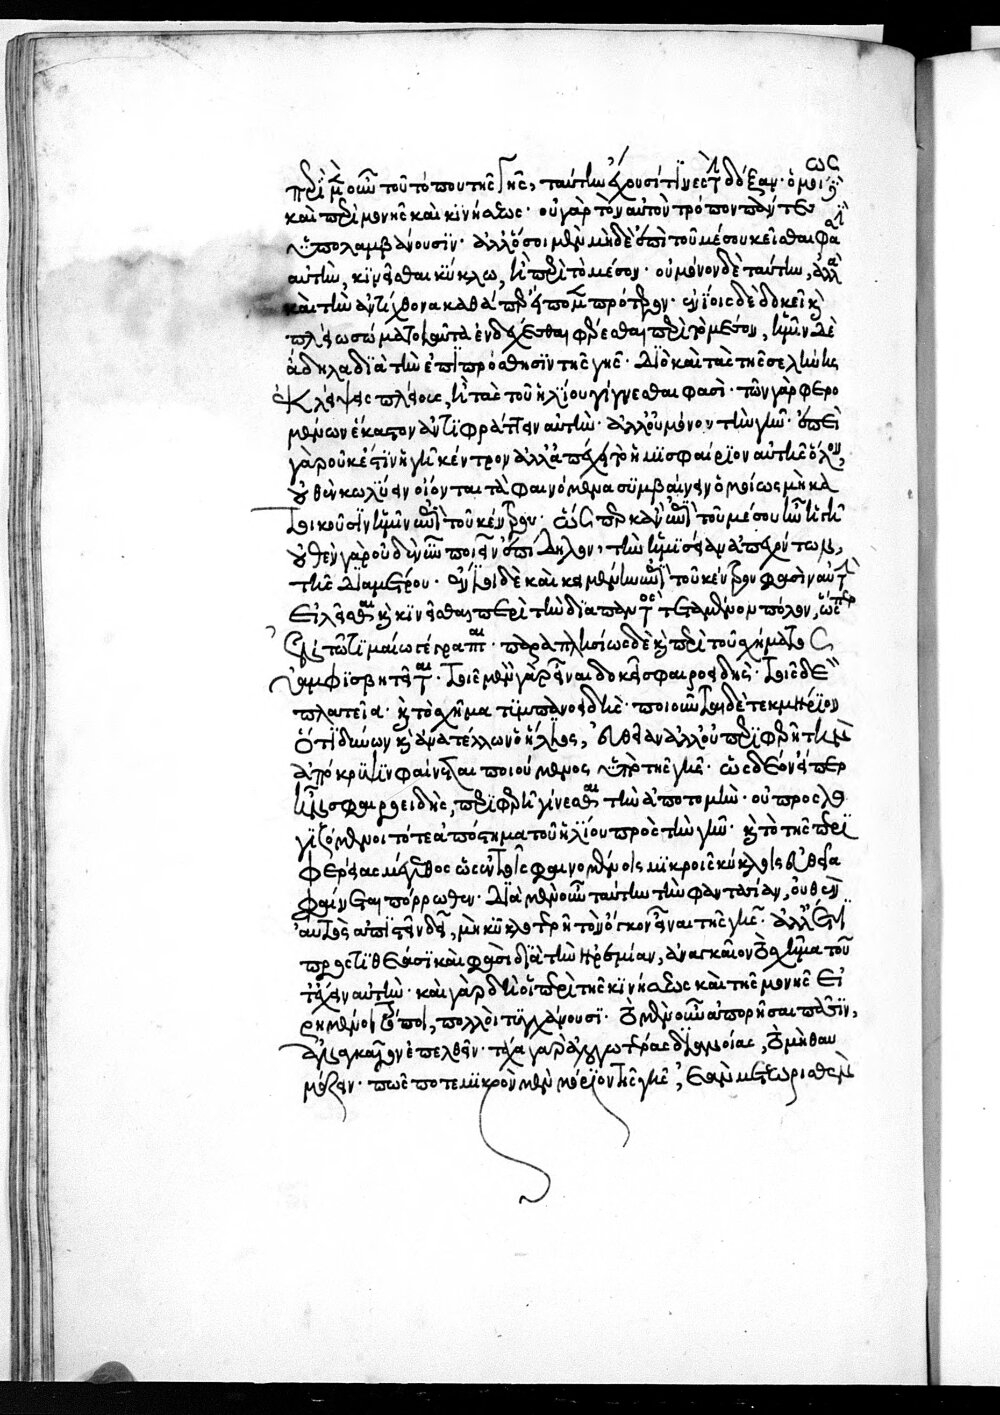 περὶ μὲν οὖν τοῦ τόπου τῆς γῆς, ταύτην ἔχουσί τινες τὴν δόξαν· ὁμοίως δὲ
καὶ περὶ μονῆς καὶ κινήσεως· οὐ γὰρ τὸν αὐτὸν τρόπον πάντες
ὑπολαμβάνουσϊν· ἀλλ' ὅσοι μὲν μηδὲ ἐπὶ τοῦ μέσου κεῖσθαι φασὶν
αὐτὴν, κινεῖσθαι κύκλω, περὶ τὸ μέσον· οὐ μόνον δὲ ταύτην, ἀλλὰ
καὶ τὴν ἀντίχθονα καθάπερ εἴπομεν πρότερον· ἐνίοις δὲ δοκεῖ καὶ
πλείω σώματα τοιαῦτα ἐνδέχεσθαι φέρεσθαι περὶ τὸ μέσον, ἡμῖν δὲ
ἄδηλα διὰ τὴν ἐπιπρόσθησϊν τῆς γῆς· διὸ καὶ τὰς τῆς σελήνης
ἐκλείψεις πλείους, ἢ τὰς τοῦ ἡλίου γίγνεσθαι φασὶ· τῶν γὰρ φερο
μένων ἕκαστον ἀντιφράττειν αὐτὴν· ἀλλ' οὐ μόνον τὴν γῆν· ἐπεὶ
γὰρ οὐκ ἔστϊν ἡ γῆ κέντρον ἀλλὰ ἀπέχει τὸ ἡμισφαίριον αὐτῆς ὅλον,
οὐθὲν κωλύειν οἴονται τὰ φαινόμενα συμβαίνειν ὁμοίως μὴ κα
τοικοῦσϊν ἡμῖν ἐπὶ τοῦ κέντρου· ὥσπερ κἂν ἐπὶ τοῦ μέσου ἦν ἡ γῆ
οὐθὲν γὰρ οὐδὲ νῦν ποιεῖν ἐπίδηλον, τὴν ἡμίσειαν ἀπεχόντων,
τῆς διαμέτρου· ἔνιοι δὲ καὶ κειμένην ἐπὶ τοῦ κέντρου φασὶν αὐτὴν
εἱλεῖσθαι καὶ κινεῖσθαι περὶ τὴν διὰ παντὸς τεταμένον πόλον, ὥσπερ
ἐν τῶ τιμαίω γέγραπται· παραπλησίως δὲ καὶ περὶ τοῦ σχήματος
ἀμφισβητεῖται· τοῖς μὲν γὰρ εἶναι δοκεῖ σφαιροειδής· τοῖς δὲ
πλατεῖα· καὶ τὸ σχῆμα τυμπανοειδής· ποιοῦνται δὲ τεκμήριον
ὅτι δύνων καὶ ἀνατέλλων ὁ ἥλιος, εὐθεῖαν ἀλλ' οὐ περιφερῆ τὴν
ἀπόκρυψϊν φαίνεται ποιούμενος ὑπὸ τῆς γῆς· ὡς δέον εἴπερ
ἦν σφαιροειδὴς, περιφερῆ γίνεσθαι τὴν ἀποτομὴν· οὐ προσλο
γιζόμενοι τό τε ἀπόστημα τοῦ ἡλίου πρὸς τὴν γῆν· καὶ τὸ τῆς περι
φερείας μέγεθος ὡς ἐν τοῖς φαινομένοις μικροῖς κύκλοις εὐθεῖα
φαίνεται πόρρωθεν· διὰ μὲν οὖν ταύτην τὴν φαντασίαν, οὐθὲν
αὐτοὺς ἀπιστεῖν δεῖ, μὴ κυκλοτερῆ τὸν ὄγκον εἶναι τῆς γῆς· ἀλλ' ἔτι
προστιθέασϊ καὶ φασὶ διὰ τὴν ἠρεμίαν, ἀναγκαῖον τὸ σχῆμα τοῦτ'
ἔχειν αὐτὴν· καὶ γὰρ δὴ οἱ περὶ τῆς κινήσεως καὶ τῆς μονῆς εἰ
ρημένοι τρόποι, πολλοὶ τυγχάνουσι· τὸ μὲν οὖν ἀπορῆσαι πᾶσϊν,
ἀναγκαῖον ἐπελθεῖν· τάχα γὰρ ἀλυποτέρας διανοίας, τὸ μὴ θαυ
μάζειν· πῶς ποτε μικρὸν μὲν μόριον τῆς γῆς, ἐὰν μετεωρισθὲν